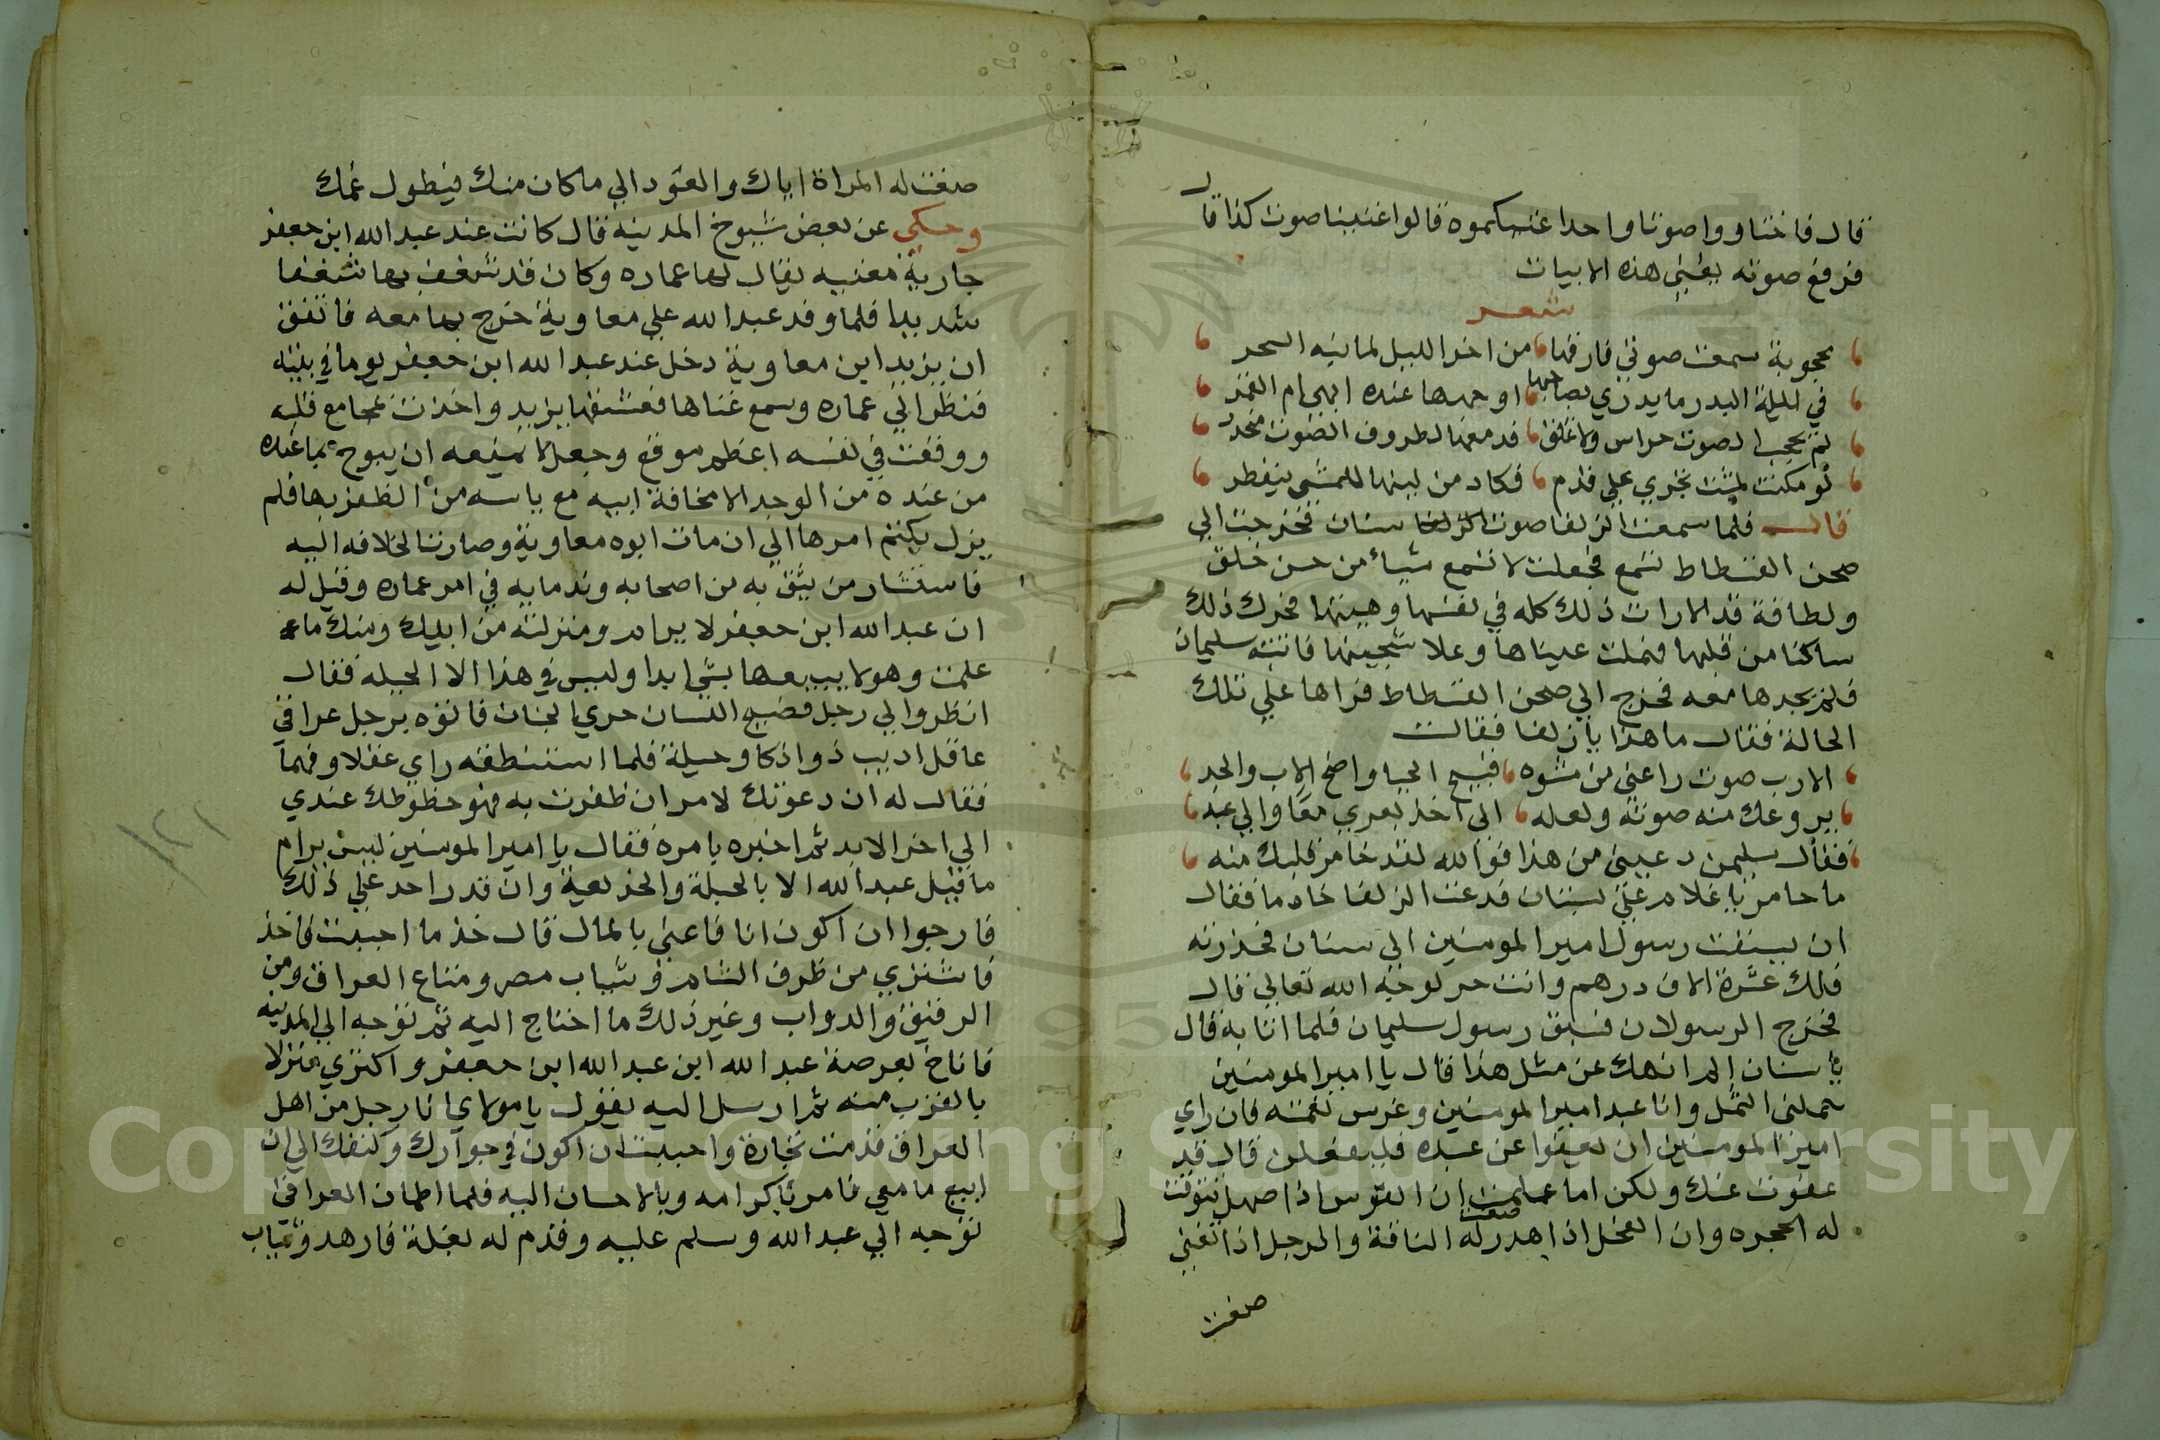 قال فاختاروا صوتا واحدا غنيكموه قالوا غنينا صوت كذا قال
فرفع صوته يغني هذه الابيات
شعر
محجوبة سمعت صوتي فارقها من اخر الليل لما نبه السحر
في ليلة البدر ما يدري بصاحبها اوجهها عنده ابهى ام القمر
لم يحجب الصوت حراس ولا غلق فدمعها لطروق الصوت منحدر
لو مكنت لمشت نحوي على قدم فكاد من لينها للمشي ينفطر
قال فلما سمعت الزلفا صوت سنان فخرجت الي
صحن الفسطاط تسمع فجعلت لا تسمع شيأ من حسن خلق
ولطافة قد الا رات ذلك كله في نفسها وهيئتها فحرك ذلك
ساكنا من قلبها فهملت عيناها وعلا نحيبها فانتبه سليمان
فلم يجدها معه فخرج الي صحن الفسطاط فراها علي تلك
الحالة فقال ما هذا يا زلفا فقالت
الا رب صوت راعني من مشوه قبيح المحيا واضع الاب والجد
يروعك منه صوته ولعله الى اخذ يعزي معا والي عبد
فقال سليمن دعيني من هذا فوالله لقد خامر قلبك منه
ما خامر يا غلام علي بسنان فدعت الزلفا خادما فقال
ان سبقت رسول امير المومنين الي سنان فحذرته
فلك عشرة الاف درهم وانت حر لوجه الله تعالي قال
فخرج الرسولان فسبق رسول سليمان فلما اتا به قال
يا سنان الم انهك عن مثل هذا قال يا امير المومنين
حملني الثمل وانا عبد امير المومنين وغرس نعمته فان راي
امير المومنين ان يعفوا عن عبده فليفعلن قال قد
عفوت عنك ولكن اما علمت ان الفرس اذا صهل توقت
له الحجره وان الفحل اذا هدر صغت له الناقة والرجل اذا تغني
صغت
صغت له المراة اياك والعود الي ما كان منك فيطول غمك
وحكي عن بعض شيوخ المدينه قال كانت عند عبد الله ابن جعفر
جارية مغنيه يقال لها عماره وكان قد شغف بها شغفا
شديدا فلما وفد عبد الله علي معاوية خرج بها معه فاتفق
ان يزيد ابن معاوية دخل عند عبد الله ابن جعفر يوما في بيته
فنظر الي عماره وسمع غناها فعشقها يزيد واخذت بمجامع قلبه
ووقعت في نفسه اعظم موقع وجعل لا يمنعه ان يبوح بما عنده
من عنده من الوجد الا مخافة ابيه مع ياسه من الظفر بها فلم
يزل يكتم امرها الي ان مات ابوه معاوية وصارت الخلافه اليه
فاستشار من يثق به من اصحابه وندمايه في امر عماره وقيل له
ان عبد الله ابن جعفر لا يرام ومنزلته من ابيك ومنك ما
علمت وهو لا يبيعها بشي ابدا وليس في هذا الا الحيله فقال
انظروا لي رجل فصيح اللسان جري الجنان فاتوه برجل عراقي
عاقل اديب ذوا ذكا وحيلة فلما استنطقه راي عقلا وفهما
فقال له ان دعوتك لامر ان ظفرت به فهو حظوظك عندي
الي اخر الابد ثم اخبره بامره فقال يا امير المومنين ليس يرام
ما قبل عبد الله الا بالحيلة والخديعة وان قدر احد علي ذلك
فارجوا ان اكون انا فاعني بالمال قال خذ ما احببت فاخذ
فاشتري من ظرف الشام وثياب مصر ومتاع العراق ومن
الرقيق والدواب وغير ذلك ما احتاج اليه ثم توجه الي المدينه
فاناخ بعرصة عبد الله ابن عبد الله ابن جعفر واكتري منزلا
بالقرب منه ثم ارسل اليه يقول يا مولاي انا رجل من اهل
العراق قدمت بتجارة واحببت ان اكون في جوارك وكنفك الي ان
ابيع ما معي فامر باكرامه وبالاحسان اليه فلما اطمان العراقي
توجه الي عبد الله وسلم عليه وقدم له بغلة فارهة وثياب
١٢١
Copyright © King Saud University